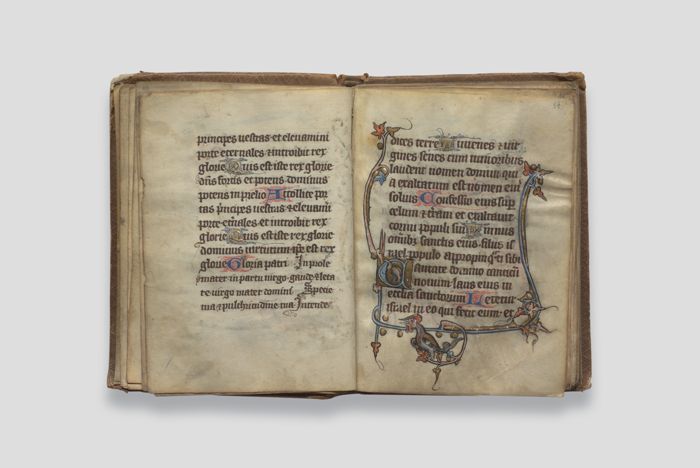 principes uestras et eleuamini
porte eternales et introibit rex
glorie Quis est iste rex glorie
dn̄s fortis et potens dominus
potens in prelio Attollite por
tas principes uestras et eleuamī
porte et̄nales et introibit rex
glorie Quis est iste rex glorie
dominus uirtutum ip̄e est rex
glorie Gloria patri
mater in partu uirgo gaude et leta
re uirgo mater domini Specie
tua et pulchritudine tua Intende
dices terre iuuenes et uir
gines senes cum iunioribus
laudent nomen domini quia
a exaltatum est nomen eiꝰ
solius Confessio eius sup̄
celum et t̄ram et exaltauit
cornu populi sui Ymnus
om̄ibꝫ sanctis eius filiis is
rael populo appropinq̄nti sibi
Cantate domino canticū
nouum laus eius in
ecc̄lia sanctorum Letetur
israel in eo qui fecit eum et